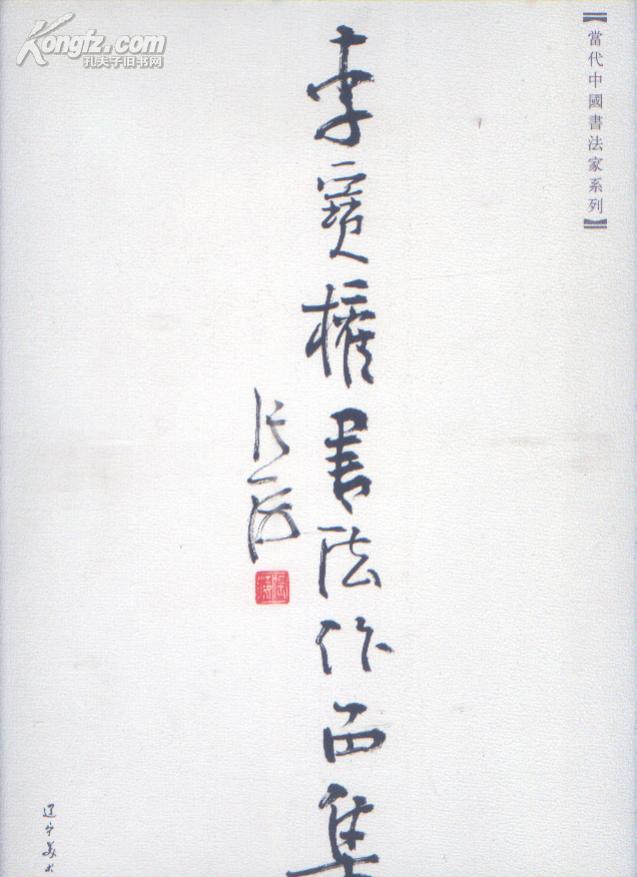 Kongfz.com
孔夫子旧书网
【當代中國書法家系列】
李寶權書法作品集
张海
辽宁美术